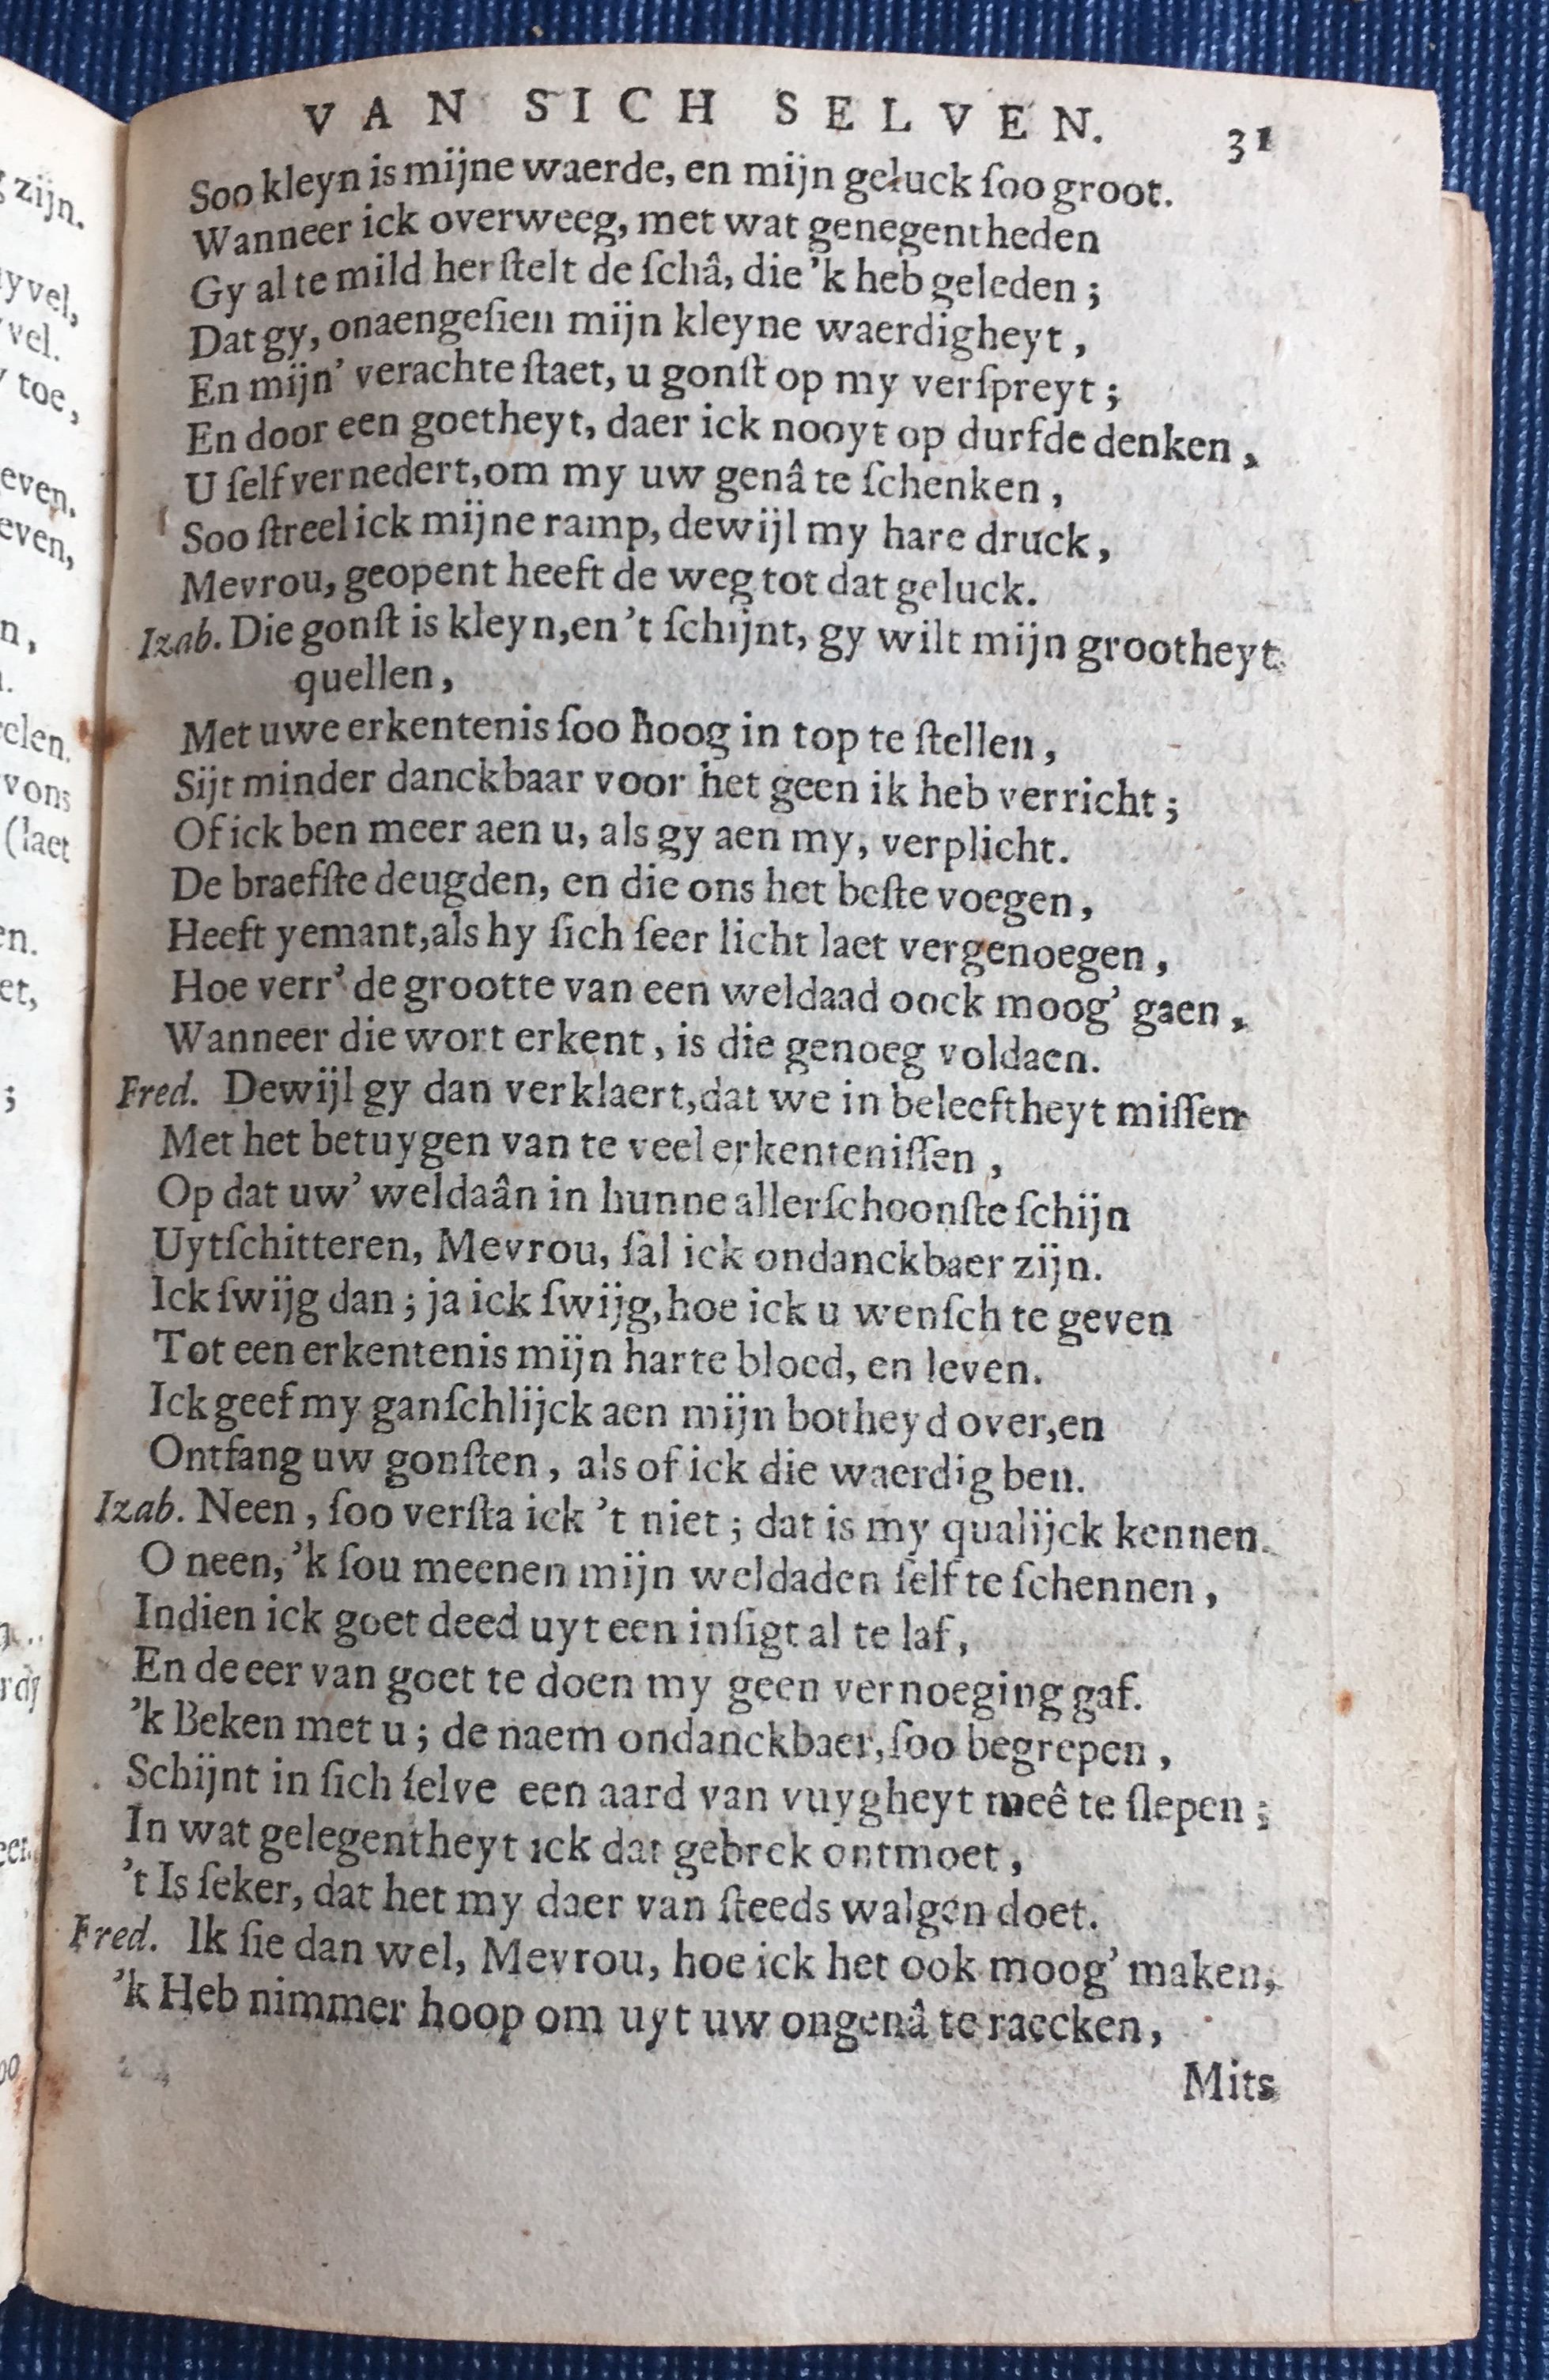 VAN SICH SELVEN. 31
Soo kleyn is mijne waerde, en mijn geluck ſoo groot.
Wanneer ick overweeg, met wat genegentheden
Gy al te mild herſtelt de ſchâ, die 'k heb geleden ;
Dat gy, onaengeſien mijn kleyne waerdigheyt ,
En mijn' verachte ſtaet, u gonſt op my verſpreyt ;
En door een goetheyt, daer ick nooyt op durfde denken ,
U ſelf vernedert, om my uw genâ te ſchenken ,
Soo ſtreel ick mijne ramp, dewijl my hare druck ,
Mevrou, geopent heeft de weg tot dat geluck.
Izab. Die gonſt is kleyn, en 't ſchijnt, gy wilt mijn grootheyt
quellen ,
Met uwe erkentenis ſoo hoog in top te ſtellen ,
Sijt minder danckbaar voor het geen ik heb verricht ;
Of ick ben meer aen u, als gy aen my, verplicht.
De braefſte deugden, en die ons het beſte voegen ,
Heeft yemant, als hy ſich ſeer licht laet vergenoegen ,
Hoe verr' de grootte van een weldaad oock moog' gaen ,
Wanneer die wort erkent , is die genoeg voldaen.
Fred. Dewijl gy dan verklaert, dat we in beleeftheyt miſſen
Met het betuygen van te veel erkenteniſſen ,
Op dat uw' weldaân in hunne allerſchoonſte ſchijn
Uytſchitteren, Mevrou, ſal ick ondanckbaer zijn.
Ick ſwijg dan ; ja ick ſwijg, hoe ick u wenſch te geven
Tot een erkentenis mijn harte bloed, en leven.
Ick geef my ganſchlijck aen mijn botheyd over, en
Ontfang uw gonſten , als of ick die waerdig ben.
Izab. Neen , ſoo verſta ick 't niet ; dat is my qualijck kennen.
O neen, 'k ſou meenen mijn weldaden ſelf te ſchennen ,
Indien ick goet deed uyt een inſigt al te laf ,
En de eer van goet te doen my geen vernoeging gaf.
'k Beken met u ; de naem ondanckbaer, ſoo begrepen ,
Schijnt in ſich ſelve een aard van vuygheyt meê te ſlepen ;
In wat gelegentheyt ick dat gebrek ontmoet ,
't Is ſeker, dat het my daer van ſteeds walgen doet.
Fred. Ik ſie dan wel, Mevrou, hoe ick het ook moog' maken,
'k Heb nimmer hoop om uyt uw ongenâ te raecken ,
Mits